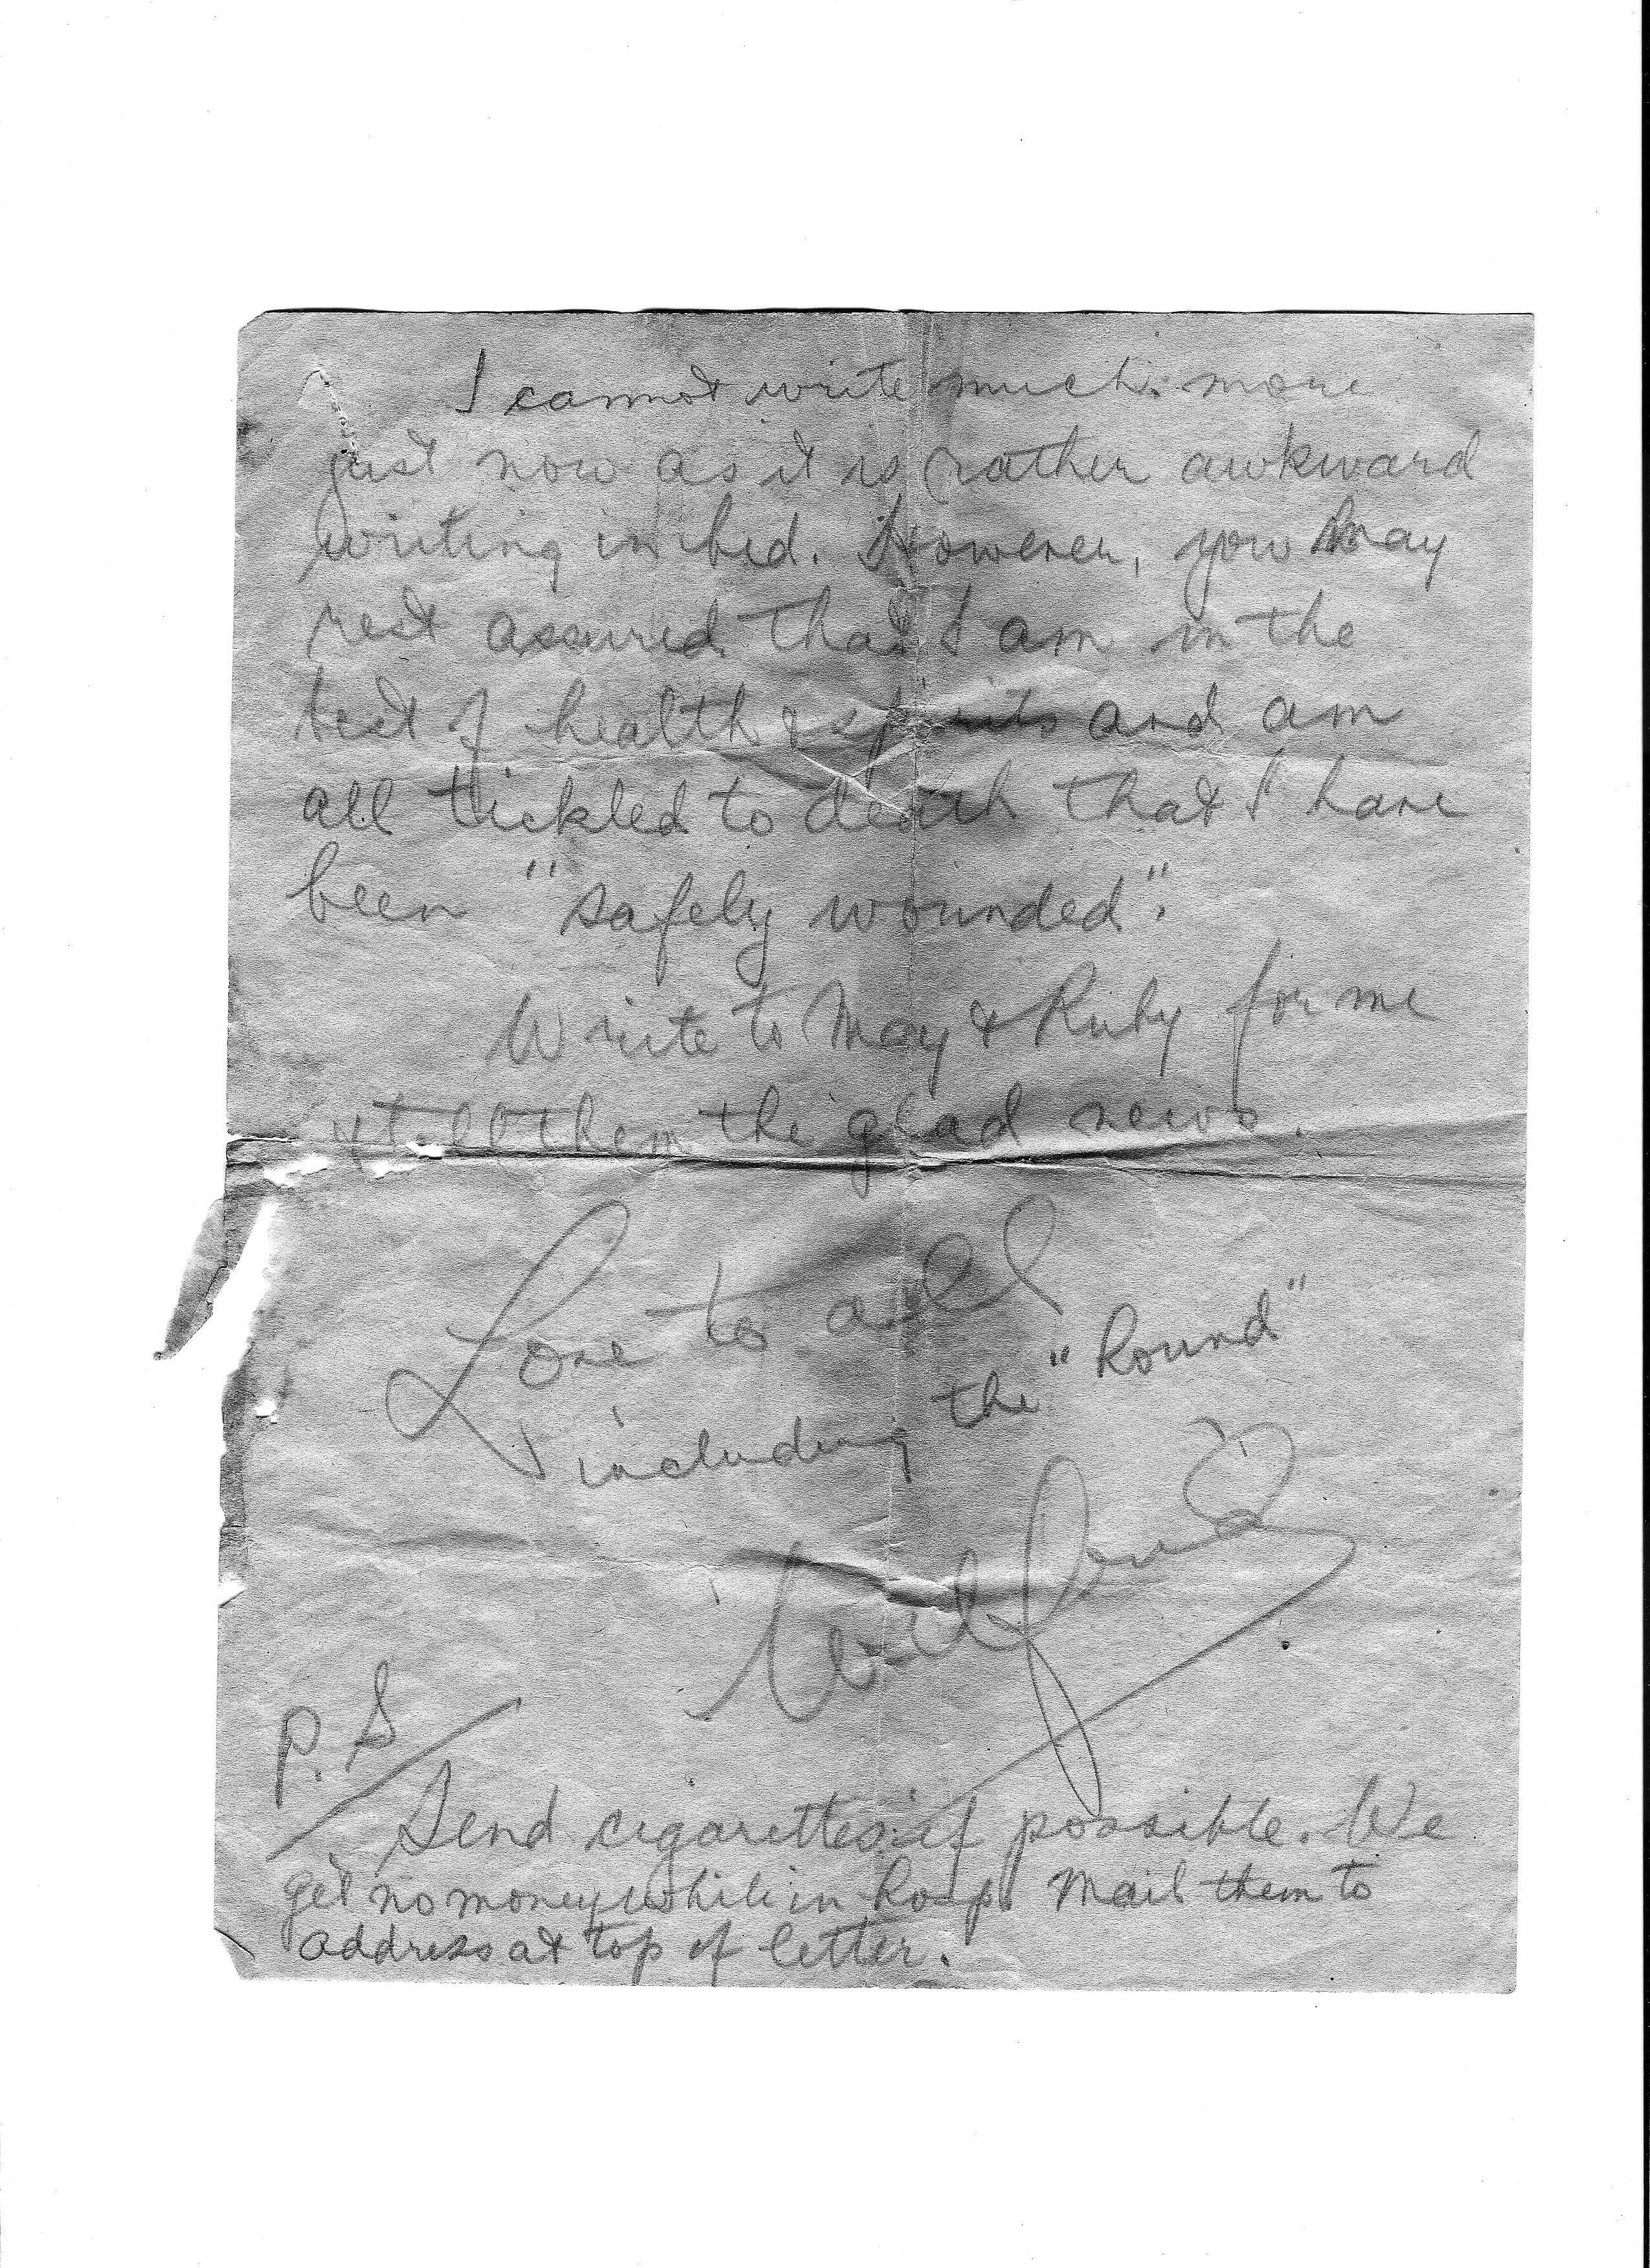 I cannot write much more
just now as it is rather awkward
writing in bed. However, you may
rest assured that I am in the
best of health & spirits and am
all tickled to death that I have
been "safely wounded".
Write to May & Ruby for me
& tell them the glad news.
Love to all
including the "hound"
Wilfrid
P.S
Send cigarettes if possible. We
get no money while in hosp. Mail them to
address at top of letter.